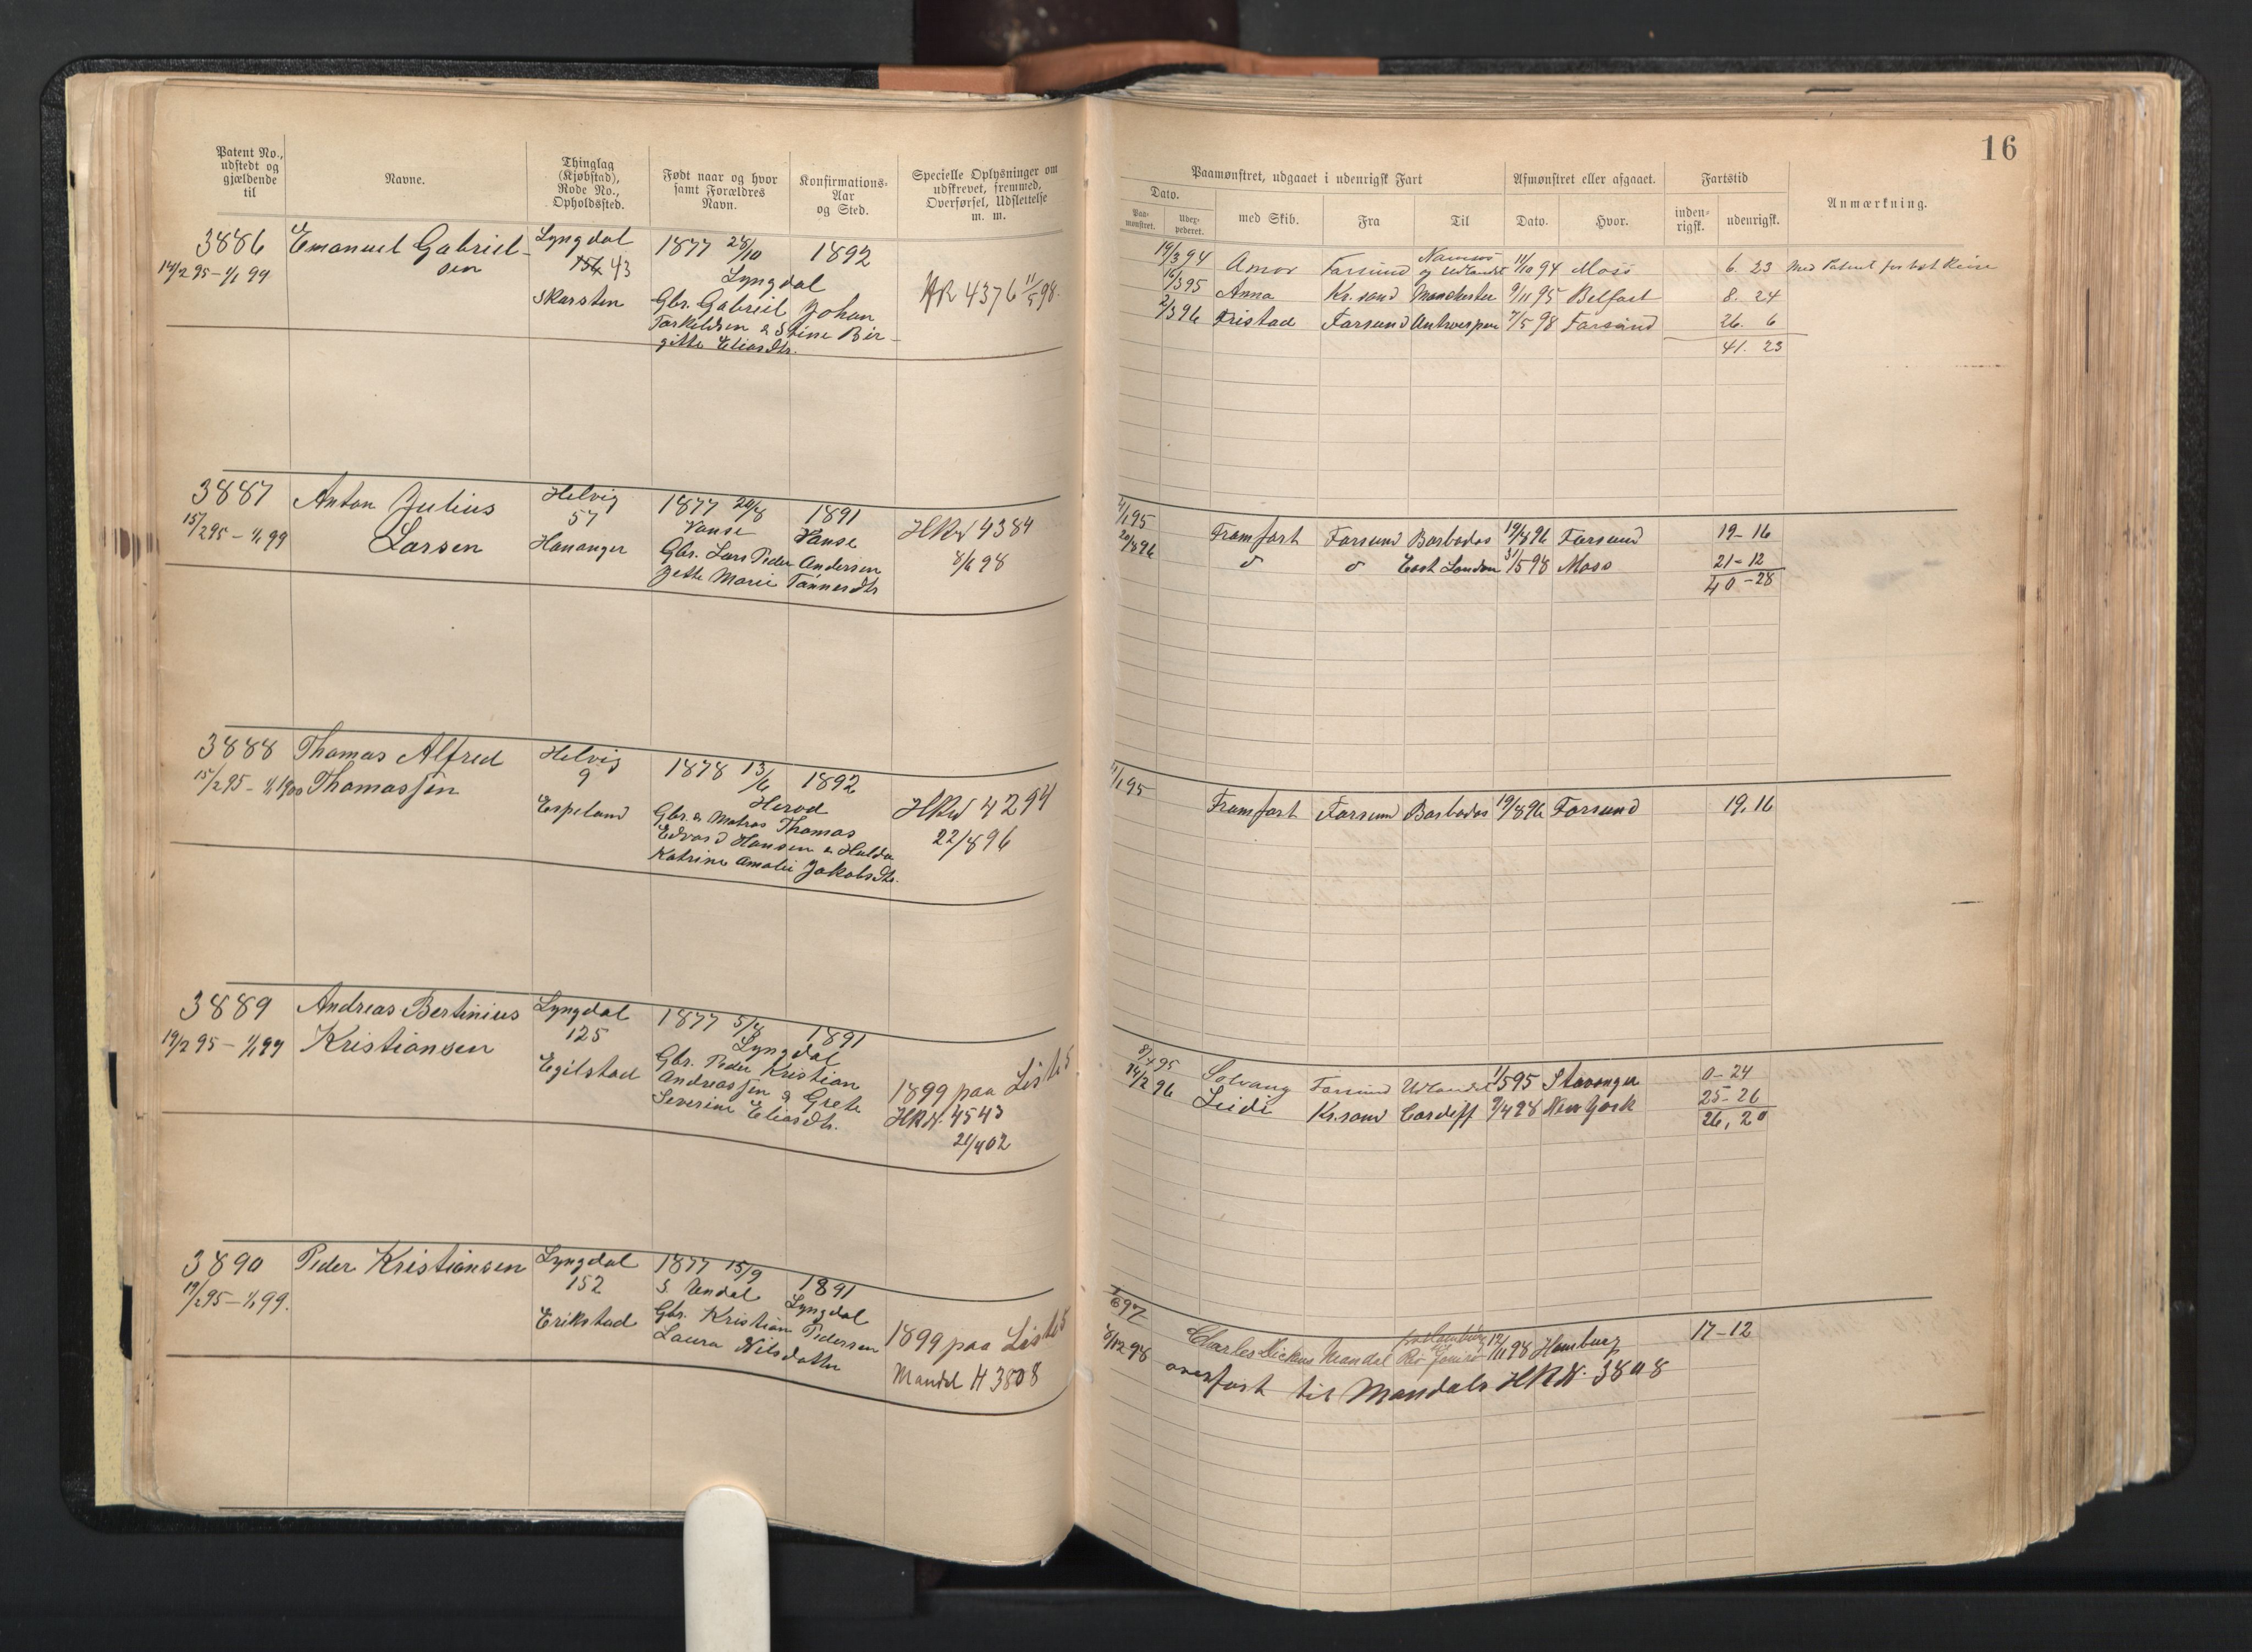 16
Patent No., udstedt og gjældende til
Navne.
Thinglag (Kjøbstad), Rode No., Opholdssted.
Født naar og hvor samt Forældres Navn.
Konfirmations-Aar og Sted.
Specielle Oplysninger om udskrevet, fremmed, Overførsel, Udslettelse m. m.
Paamønstret, udgaaet i udenrigsk Fart
Afmønstret eller afgaaet.
Fartstid
Anmærkning.
Dato.
Paa-mønstret.
Uder-pederet.
med Skib.
Fra
Til
Dato.
Hvor.
inden-rigsk.
udenrigsk.
3886 Emanuel Gabriel- Lyngdal 1877 28/10 1892
14/2 95 – 1/1 99 sen 154 43 Lyngdal
Skarsten Gbr. Gabriel Johan HR 4376 11/5 98.
Tarkeldsen & Stine Bir-
gitte Eliasdtr.
19/3 94 Amor Farsund Namsos og Udlandet 11/10 94 Moss 6. 23
16/3 95 Anna Kr.sand Manchester 9/11 95 Belfast 8. 24
2/3 96 Fristad Farsund Antwerpen 7/5 98 Farsund 26. 6
41. 23
3887 Anton Julius Helvig 1877 20/8 1891
15/2 95 – 1/1 99 Larsen 57 Vanse Vanse HRN 4384
Hananger Gbr. Lars Peder Andersen 8/6 98
Jette Marie Tønnesdtr
4/1 95 Framfart Farsund Barbados 19/8 96 Farsund 19–16
20/8 96 East London 31/5 98 Moss 21–12
40–28
3888 Thomas Alfred Helvig 1878 13/6 1892
15/2 95 – 1/1 1900 Thomassen 9 Herod
Espeland Gbr. & Matros Thomas HRN 4294
Edvard Hansen & Hulda 22/8 96
Katrine Amalie Jakobsdtr.
4/1 95 Framfart Farsund Barbados 19/8 96 Farsund 19. 16
3889 Andreas Bertinius Lyngdal 1877 5/8 1891
19/2 95 – 1/1 99 Kristiansen 125 Lyngdal
Egilstad Gbr. Peder Kristian
Andreassen & Grete 1899 paa Liste 5
Severine Eliasdtr. HRN. 4543
21/4 02
8/4 95 Solvang Farsund Udlandet 1/5 95 Stavanger 0–24
14/2 96 Leidi Kr.sand Cardiff 9/4 98 New York 25–26
26, 20
3890 Peder Kristiansen Lyngdal 1877 15/9 1891
19/2 95 – 1/1 99. 152 S. Undal Lyngdal
Erikstad Gbr. Kristian Pedersen
Laura Nilsdatter 1899 paa Liste 5
Mandal H 3808
Charles Dickens Mandal Rio Janeiro 12/11 98 Hamburg 17–12
8/12 98 overført til Mandals HRN. 3808